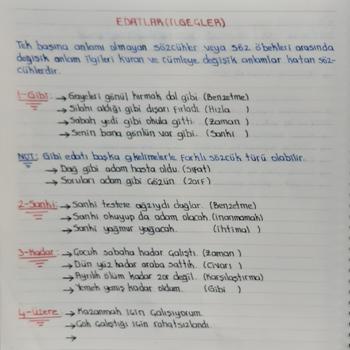 EDATLAR(İLGEÇLER)
Tek başına anlamı olmayan sözcükler veya söz öbekleri arasında
değişik anlam ilgileri kuran ve cümleye değişik anlamlar katan söz-
cüklerdir.
1-Gibi: → Gayeleri gönül kırmak dal gibi (Benzetme)
→ Silahı aldığı gibi dışarı fırladı (Hızla )
→ Sabah yedi gibi okula gitti. (Zaman )
→ Senin bana gönlün var gibi. (Sanki )
NOT: Gibi edatı başka kelimelerle farklı sözcük türü olabilir.
→ Dağ gibi adam hasta oldu. (Sıfat)
→ Soruları adam gibi çözün. (Zarf)
2-Sanki: → Sanki testere ağzıydı dağlar. (Benzetme)
→ Sanki okuyup da adam olacak. (inanmamak)
→ Sanki yağmur yağacak. (ihtimal )
3-Kadar: → Çocuk sabaha kadar çalıştı. (Zaman )
→ Dün yüz kadar araba sattık. (Civarı )
→ Ayrılık ölüm kadar zor değil. (Karşılaştırma)
→ Yemek yemiş kadar oldum. (Gibi )
4-Üzere → Kazanmak için çalışıyorum.
→ Çok çalıştığı için rahatsızlandı.
→